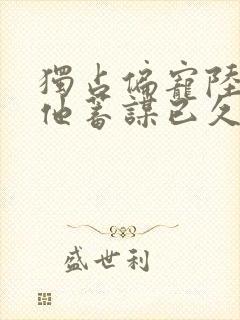 獨占偏寵陸
他蓄謀已久
盛世利